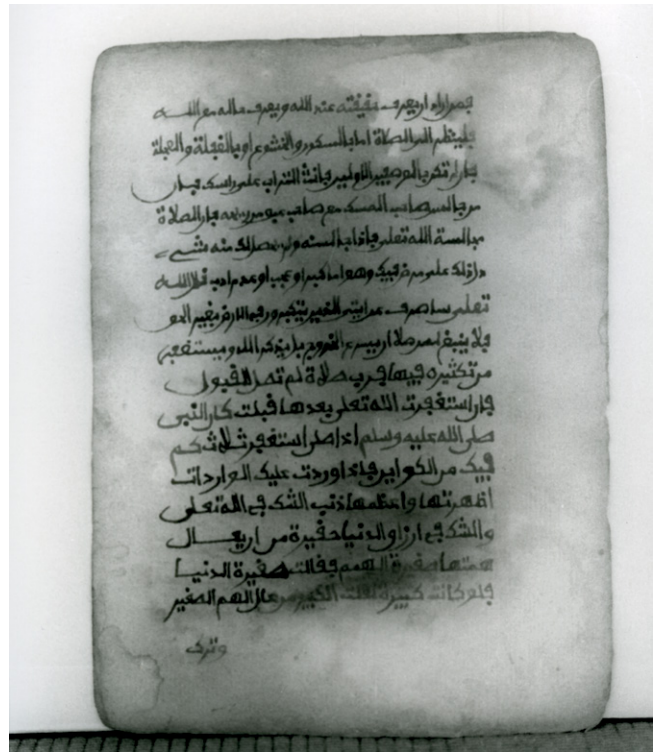 فمن اراد ان يعرف حقيقته عند الله ويعرف حاله مع الله
فلينظر الى الصلاة اما بالسكون والخشوع او بالغفلة والعجلة
فان لم تكن بالوصفين الاولين فاحث التراب على راسك فان
من جالس صاحب المسك عبق من ريحه فان الصلاة
مجالسة الله تعلى فاذا جالسته ولم يحصل لك منه شيء
دل ذلك على مرض فيك وهو اما كبر او عجب او عدم ادب قال الله
تعلى ساصرف عن ايتي الذين يتكبرون في الارض بغير الحق
فلا ينبغي لمن صلا ان يسرع الخروج بل يذكر الله ويستغفره
من تكثيره فيها فرب صلاة لم تصل للقبول
فان استغفرت الله تعلى بعدها قبلت كان النبي
صلى الله عليه وسلم اذا صلى استغفر ثلاث كم
فيك من الكواين فاذا اوردت عليك الواردات
اظهرتها واعظمها ذنب الشك في الله تعلى
والشك في ارزاق الدنيا حقيرة من ان يعال
همتها صغرة الهمم فغالت صغيرة الدنيا
فلو كانت كبيرة لغالت الكبير من عال الهم الصغير
وترك